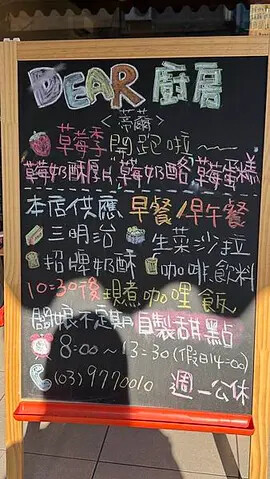 DEAR 廚房
<蒂爾>
草莓季開跑啦~~
草莓奶酥厚片 草莓奶酪 草莓蛋糕
本店供應 早餐/早午餐
三明治 生菜沙拉
招牌奶酥 咖啡.飲料
10:30後現煮咖哩飯
闆娘不定期自製甜點
8:00~13:30(假日14:00)
(03)9770010 週一公休